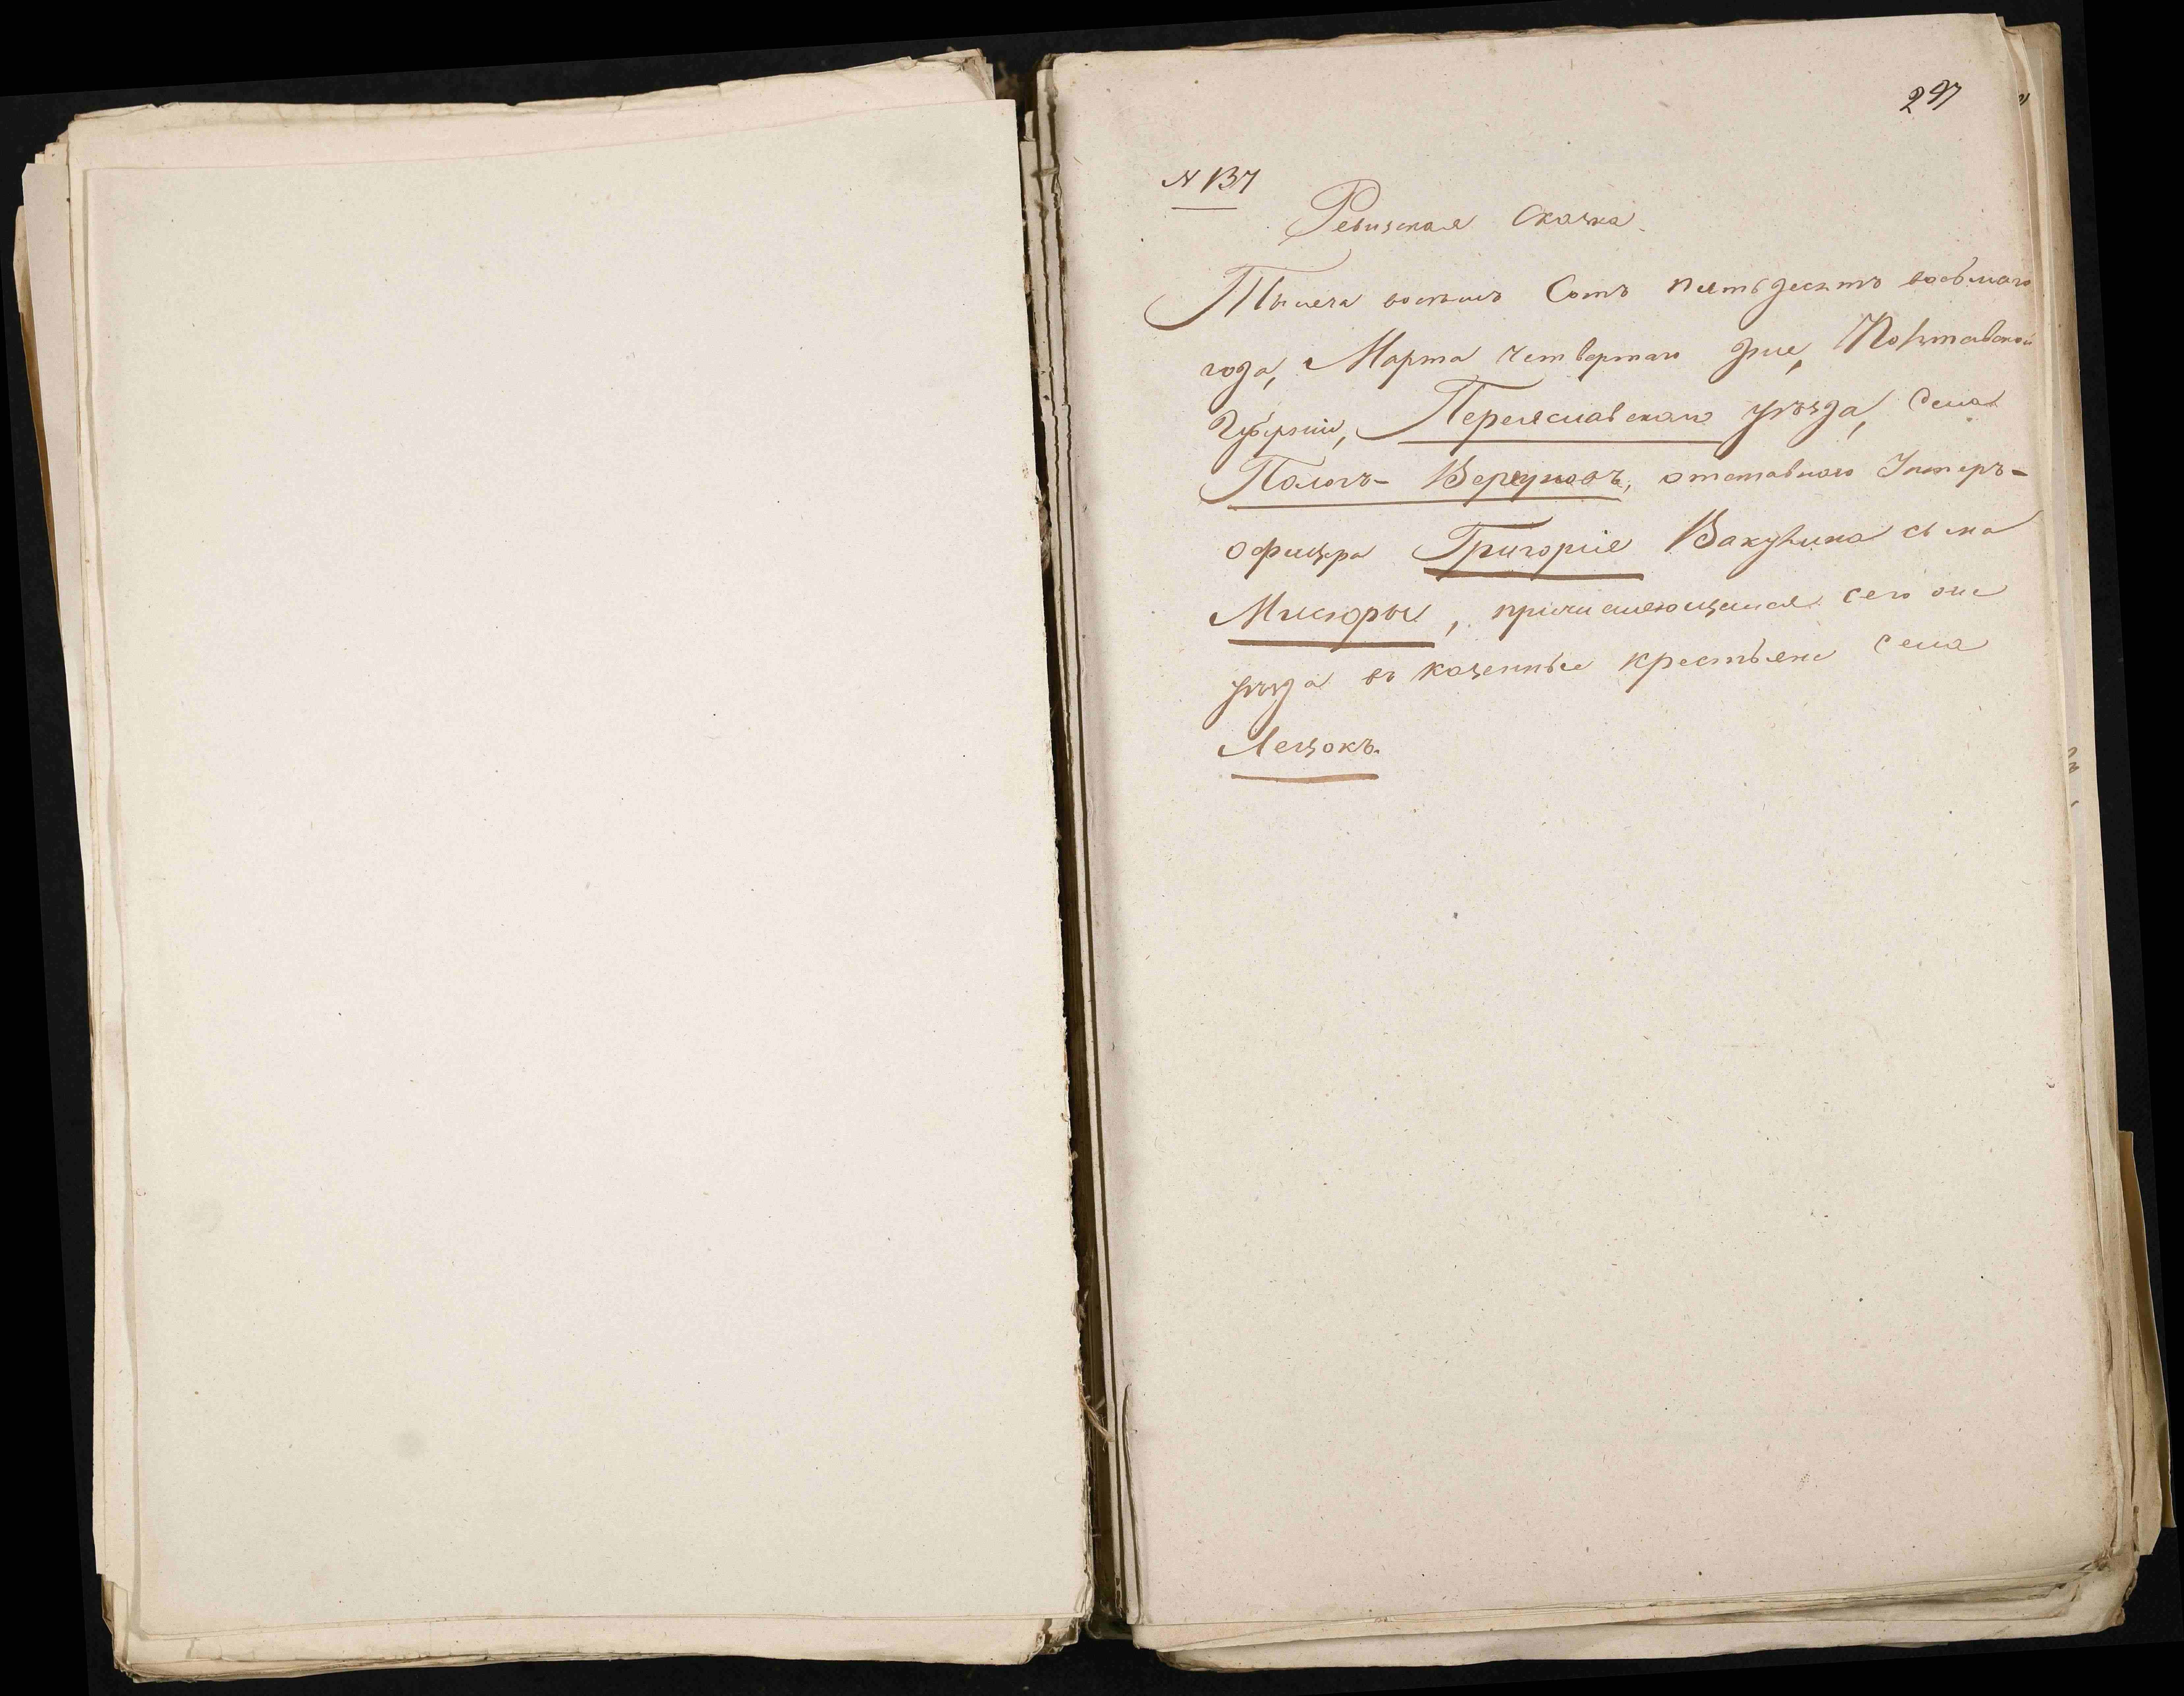 297
N 137
Ревизская Сказка.
Тысяча восемь Сотъ пятьдесятъ восьмаго
года, Марта четвертаго дня, Полтавской
Губерніи, Переяславскаго уѣзда, Села
Пологъ-Вергуновъ, отставнаго Унтеръ-
офицера Григорія Вакулина сына
Мисюры, причисляющагося сего же
уѣзда въ казенные крестьяне села
Лецокъ.